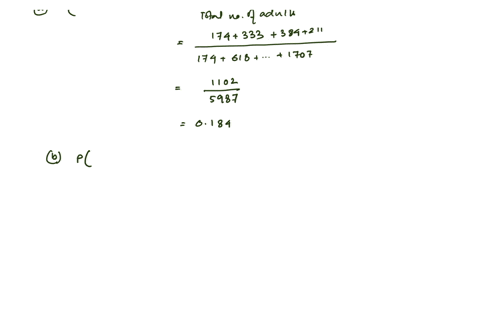 (
Total no. of adults
= 174+333 +384+211
174+ 618+ ... + 1707
= 1102
5987
= 0.184
(b) P(